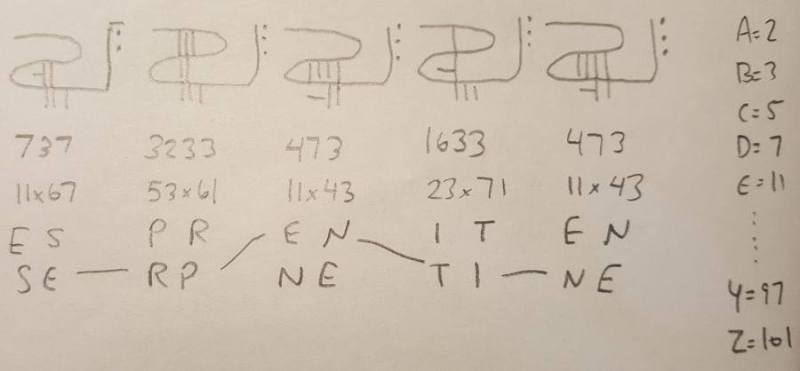 737 3233 473 1633 473
11x67 53x61 11x43 23x71 11x43
ES PR EN IT EN
SE RP NE TI NE
A=2
B=3
C=5
D=7
E=11
Y=97
Z=101